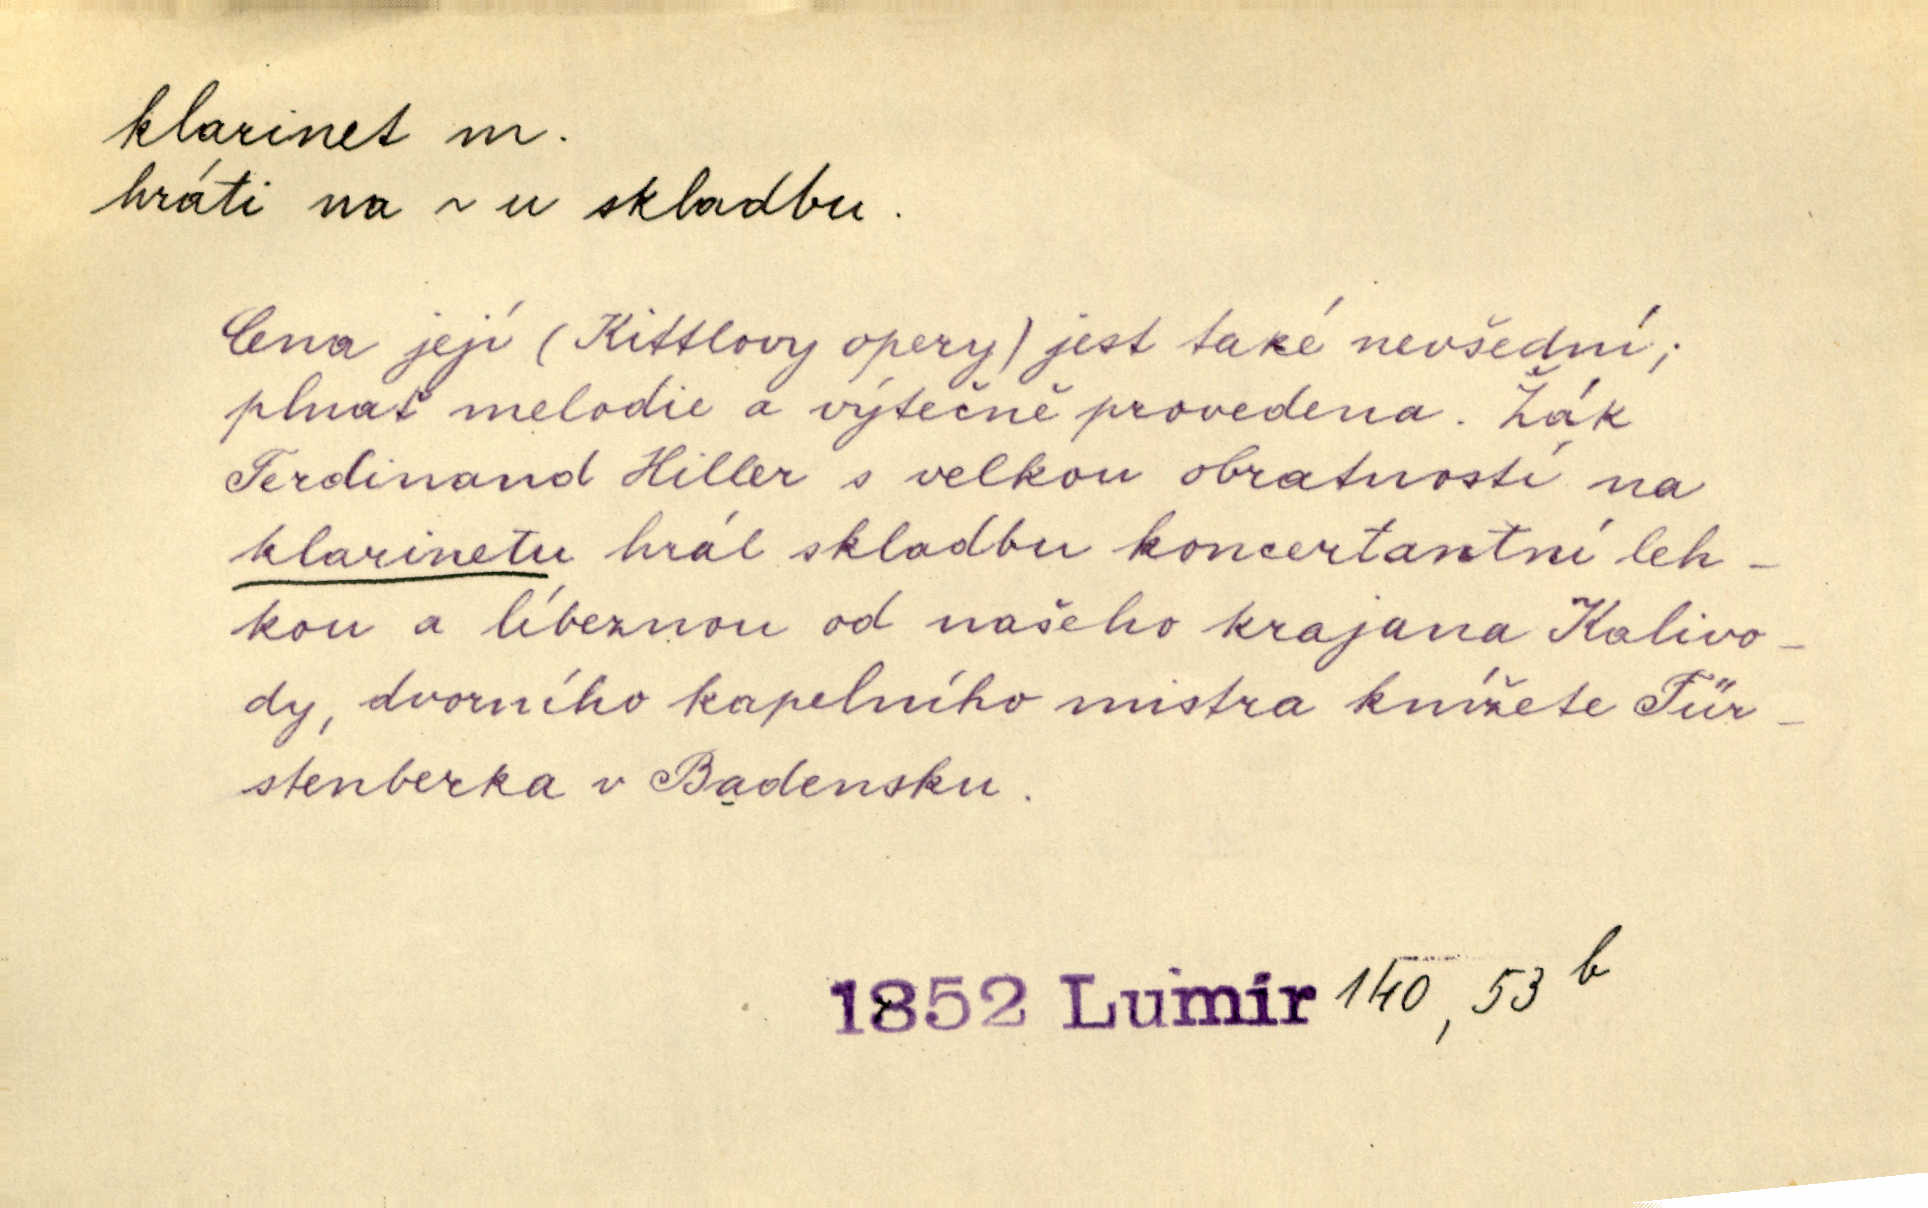 klarinet m.
hráti na ~ u skladbu.
Cena její (Kittlovy opery) jest také nevšední;
plnať melodie a výtečně provedena. Žák
Ferdinand Hiller s velkou obratností na
klarinetu hrál skladbu koncertantní leh-
kou a líbeznou od našeho krajana Kalivo-
dy, dvorního kapelního mistra knížete Für-
stenberka v Badensku.
1852 Lumír 140, 53 b